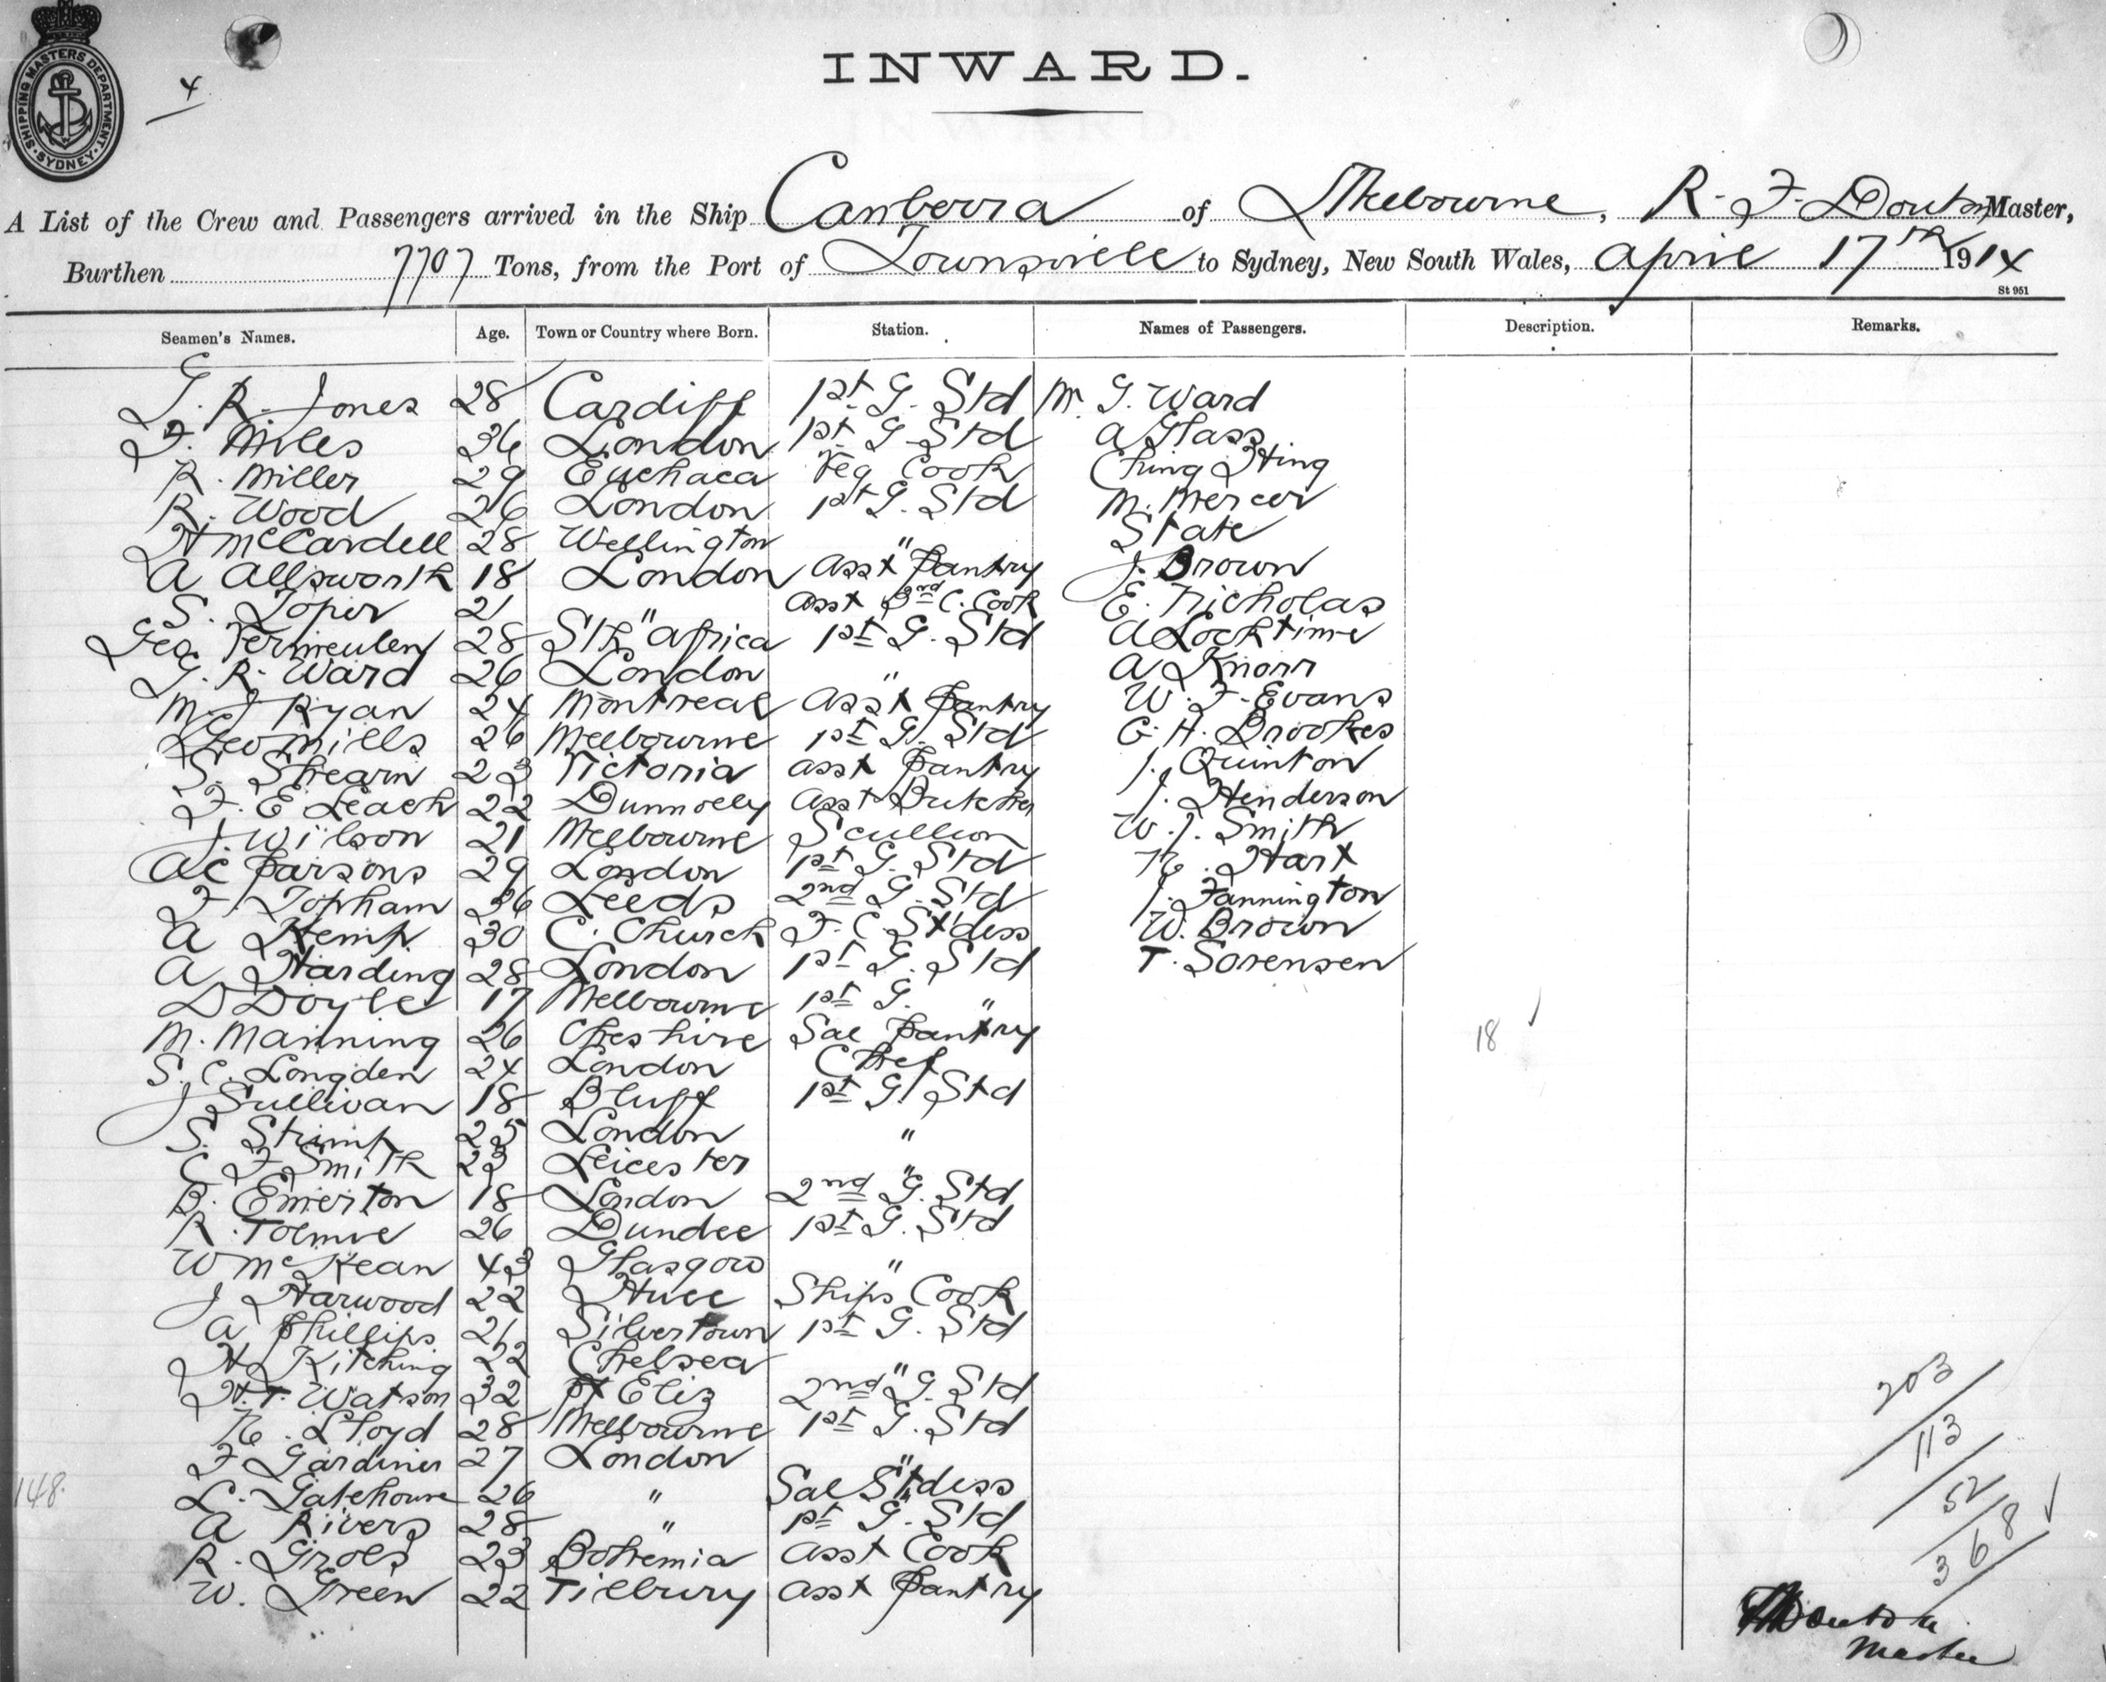 SHIPPING MASTERS DEPARTMENT
SYDNEY
4
INWARD.
A List of the Crew and Passengers arrived in the Ship Canberra of Melbourne, R. F. Douton Master,
Burthen 7707 Tons, from the Port of Townsville to Sydney, New South Wales, April 17th 1914
St 951
Seamen's Names. Age. Town or Country where Born. Station. Names of Passengers. Description. Remarks.
G. R. Jones 28 Cardiff 1st G. Std Mr. G. Ward
F. Miles 36 London 1st G Std A Glass
R. Miller 29 Euchaca Veg Cook Ching Hing
R. Wood 26 London 1st G. Std M. Mercer
H McCardell 28 Wellington " State
A Allsworth 18 London Asst Pantry J. Brown
S. Toper 21 " Asst 3rd C. Cook E. Nicholas
Geo Vermeulen 28 Sth Africa 1st G. Std A Locktime
G. R. Ward 26 London " A Knorr
M. J Ryan 24 Montreal Asst Pantry W. F. Evans
Geo Mills 26 Melbourne 1st G. Std G. H. Brookes
S. Shearn 23 Victoria Asst Pantry J. Quinton
F. E Leach 22 Dunnolly Asst Butcher J. Henderson
J. Wilson 21 Melbourne Scullion W. J. Smith
A C Parsons 29 London 1st G. Std N. Hart
F. Topham 36 Leeds 2nd G. Std J. Fannington
A Kemp 30 C. Church F. C. St'dess W. Brown
A Harding 28 London 1st G. Std T. Sorensen
D Doyle 17 Melbourne 1st G. "
M. Manning 26 Cheshire Sal Pantry 18
S. C. Longden 24 London Chef
J Sullivan 18 Bluff 1st G. Std
S. Stimp 25 London "
C F Smith 23 Leicester "
B. Emerton 18 London 2nd G. Std
R. Tolmie 26 Dundee 1st G. Std
W McKean 43 Glasgow "
J Harwood 22 Hull Ships Cook
A Phillips 26 Silvertown 1st G. Std
H Kitching 22 Chelsea "
H. T. Watson 32 Pt Eliz 2nd G. Std
N. Lloyd 28 Melbourne 1st G. Std
F Gardiner 27 London "
L. Gatehouse 26 " Sal St'dess
A Rivers 28 " 1st G. Std
R. Groes 23 Bohemia Asst Cook
W. Green 22 Tilbury Asst Pantry
148.
203
113
52
368
Douton
Master